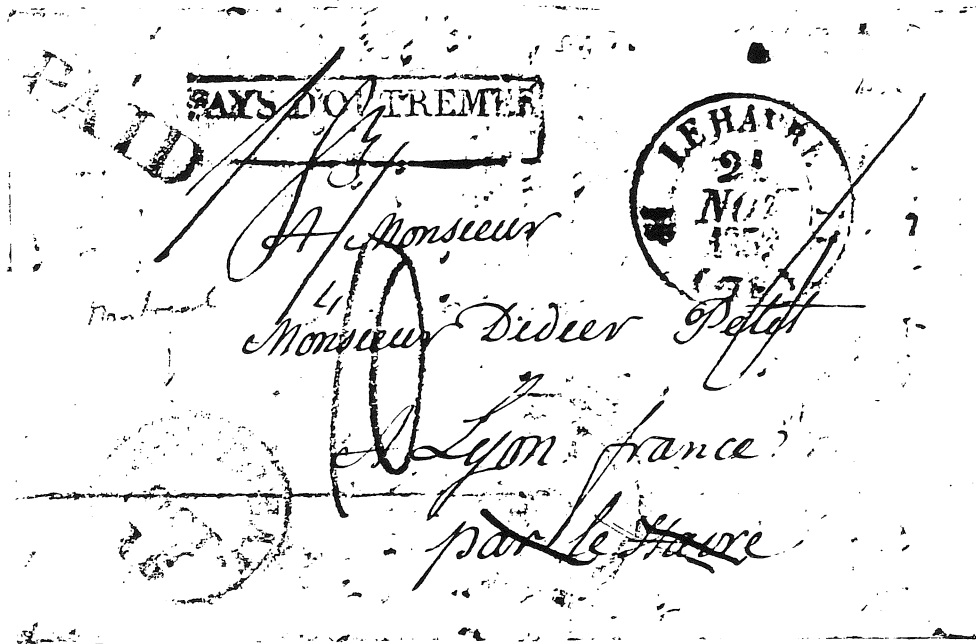 PAID
PAYS D'OUTREMER
LE HAVRE
2
NOV
A Monsieur
Montreal
Monsieur Didier Petit
10
A Lyon france
par le Havre